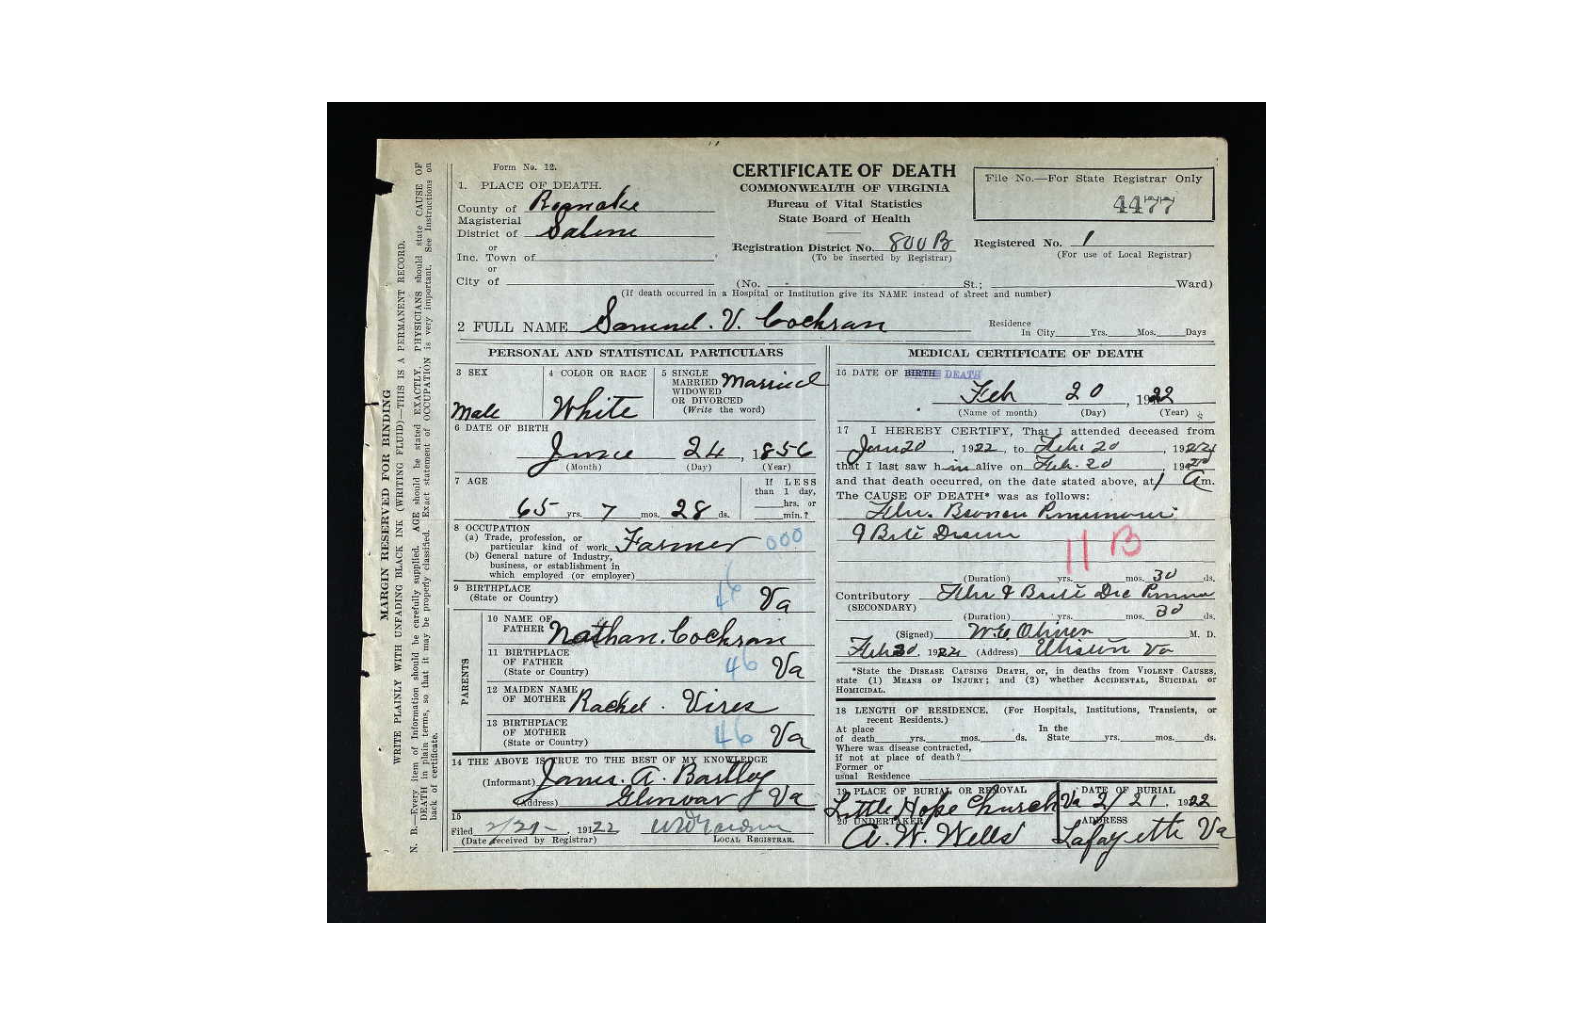 Form No. 12.
1. PLACE OF DEATH.
County of Roanoke
Magisterial
District of Salem
or
Inc. Town of
or
City of
CERTIFICATE OF DEATH
COMMONWEALTH OF VIRGINIA
Bureau of Vital Statistics
State Board of Health
Registration District No. 800 B
(To be inserted by Registrar)
File No.—For State Registrar Only
4477
Registered No. 1
(For use of Local Registrar)
(No. St.; Ward)
(If death occurred in a Hospital or Institution give its NAME instead of street and number)
2 FULL NAME Samuel. V. Cochran
Residence
In City Yrs. Mos. Days
PERSONAL AND STATISTICAL PARTICULARS
3 SEX
Male
4 COLOR OR RACE
White
5 SINGLE
MARRIED
WIDOWED
OR DIVORCED
(Write the word)
Married
6 DATE OF BIRTH
June 24, 1856
(Month) (Day) (Year)
7 AGE
65 yrs. 7 mos. 28 ds.
If LESS
than 1 day,
hrs. or
min.?
8 OCCUPATION
(a) Trade, profession, or
particular kind of work Farmer 000
(b) General nature of Industry,
business, or establishment in
which employed (or employer)
9 BIRTHPLACE
(State or Country) 46 Va
PARENTS
10 NAME OF
FATHER Nathan. Cochran
11 BIRTHPLACE
OF FATHER
(State or Country) 46 Va
12 MAIDEN NAME
OF MOTHER Rachel. Vires
13 BIRTHPLACE
OF MOTHER
(State or Country) 46 Va
14 THE ABOVE IS TRUE TO THE BEST OF MY KNOWLEDGE
(Informant) James. A. Bartley
(Address) Glenvar Va
15
Filed 2/21-, 19122
(Date received by Registrar) LOCAL REGISTRAR.
MEDICAL CERTIFICATE OF DEATH
16 DATE OF BIRTH DEATH
Feb 20, 1922
(Name of month) (Day) (Year)
17 I HEREBY CERTIFY, That I attended deceased from
Jan 20, 1922, to Feb. 20, 192
that I last saw him alive on Feb. 20, 19
and that death occurred, on the date stated above, at 1 A m.
The CAUSE OF DEATH* was as follows:
11 B
(Duration) yrs. mos. 30 ds.
Contributory
(SECONDARY)
(Duration) yrs. mos. 30 ds.
(Signed) M. D.
Feb (Address) Va
*State the DISEASE CAUSING DEATH, or, in deaths from VIOLENT CAUSES,
state (1) MEANS OF INJURY; and (2) whether ACCIDENTAL, SUICIDAL or
HOMICIDAL.
18 LENGTH OF RESIDENCE. (For Hospitals, Institutions, Transients, or
recent Residents.)
At place In the
of death yrs. mos. ds. State yrs. mos. ds.
Where was disease contracted,
if not at place of death?
Former or
usual Residence
19 PLACE OF BURIAL OR REMOVAL
Little Hope Church Va
DATE OF BURIAL
2/21. 1922
20 UNDERTAKER
A. W. Wells
ADDRESS
Lafayette Va
MARGIN RESERVED FOR BINDING
WRITE PLAINLY WITH UNFADING BLACK INK (WRITING FLUID)—THIS IS A PERMANENT RECORD.
N. B.—Every item of Information should be carefully supplied. AGE should be stated EXACTLY. PHYSICIANS should state CAUSE OF
DEATH in plain terms, so that it may be properly classified. Exact statement of OCCUPATION is very important. See Instructions on
back of certificate.